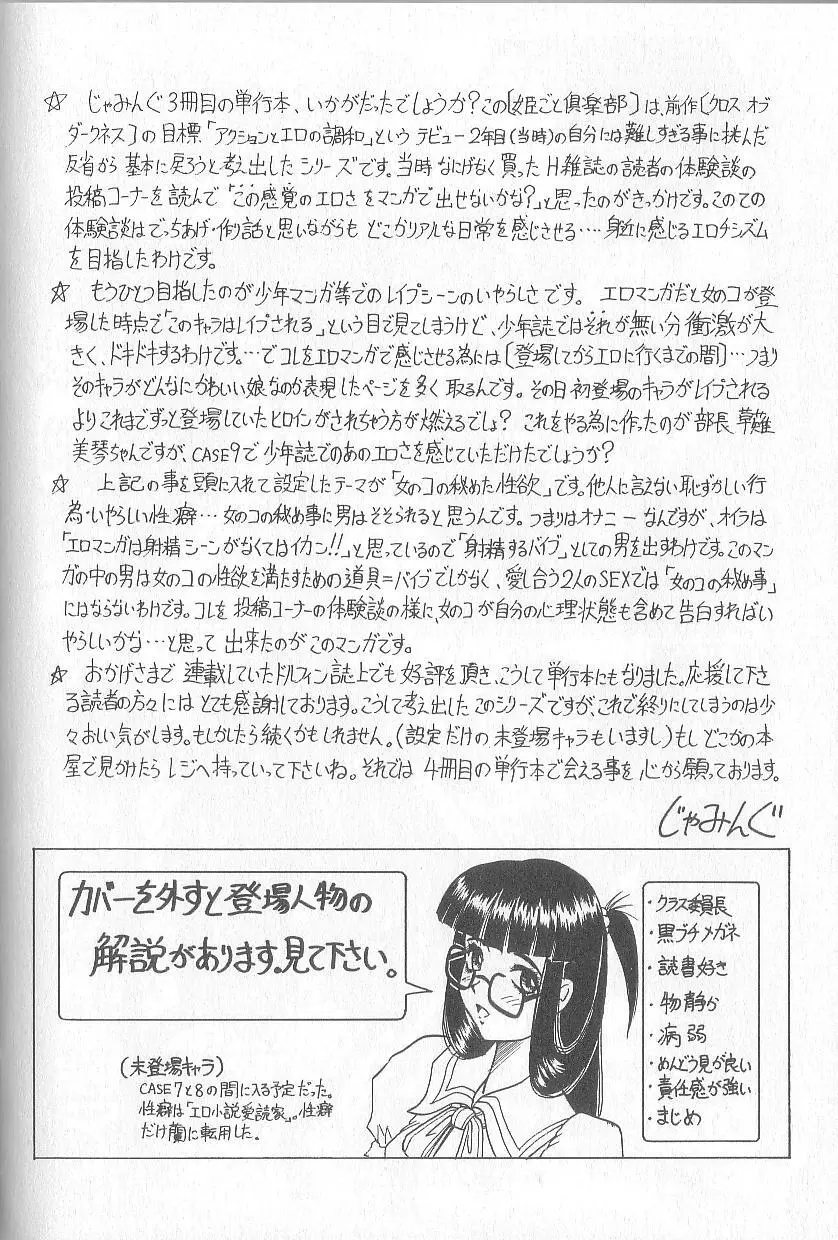 ☆ じゃみんぐ3冊目の単行本、いかがだったでしょうか?この〔姫ごと倶楽部〕は、前作〔クロス オブ
ダークネス〕の目標「アクションとエロの調和」という デビュー2年目(当時)の自分には難しすぎる事に挑んだ
反省から 基本に戻ろうと考え出したシリーズです。当時なにげなく買ったH雑誌の読者の体験談の
投稿コーナーを読んで「この感覚のエロさをマンガで出せないかな?」と思ったのがきっかけです。このての
体験談はでっちあげ・作り話と思いながらも どこかリアルな日常を感じさせる…身近に感じるエロチシズム
を目指したわけです。
☆ もうひとつ目指したのが少年マンガ等でのレイプシーンのいやらしさです。 エロマンガだと女のコが登
場した時点で「このキャラはレイプされる」という目で見てしまうけど、少年誌ではそれが無い分衝激が大
きく、ドキドキするわけです。…でコレをエロマンガで感じさせる為には〔登場してからエロに行くまでの間〕…つまり
そのキャラがどんなにかわいい娘なのか表現したページを多く取るんです。その日初登場のキャラがレイプされる
よりこれまでずっと登場していたヒロインがされちゃう方が燃えるでしょ? これをやる為に作ったのが部長 草薙
美琴ちゃんですが、CASE9で少年誌でのあのエロさを感じていただけたでしょうか?
☆ 上記の事を頭に入れて設定したテーマが「女のコの秘めた性欲」です。他人に言えない恥ずかしい行
為・いやらしい性癖…女のコの秘め事に男はそそられると思うんです。つまりはオナニーなんですが、オイラは
「エロマンガは射精シーンがなくてはイカン!!」と思っているので「射精するバイブ」としての男を出すわけです。このマン
ガの中の男は女のコの性欲を満たすための道具=バイブでしかなく、愛し合う2人のSEXでは「女のコの秘め事」
にはならないわけです。コレを投稿コーナーの体験談の様に、女のコが自分の心理状態も含めて告白すればい
やらしいかな…と思って出来たのがこのマンガです。
☆ おかげさまで連載していたドルフィン誌上でも好評を頂き、こうして単行本にもなりました。応援して下さ
る読者の方々にはとても感謝しております。こうして考え出したこのシリーズですが、これで終りにしてしまうのは少
々おしい気がします。もしかしたら続くかもしれません。(設定だけの未登場キャラもいますし)もしどこかの本
屋で見かけたらレジへ持っていって下さいね。それでは 4冊目の単行本で会える事を心から願っております。
じゃみんぐ
カバーを外すと登場人物の
解説があります。見て下さい。
(未登場キャラ)
CASE7と8の間に入る予定だった。
性癖は「エロ小説愛読家」。性癖
だけ蘭に転用した。
・クラス委員長
・黒ブチメガネ
・読書好き
・物静か
・病弱
・めんどう見が良い
・責任感が強い
・まじめ